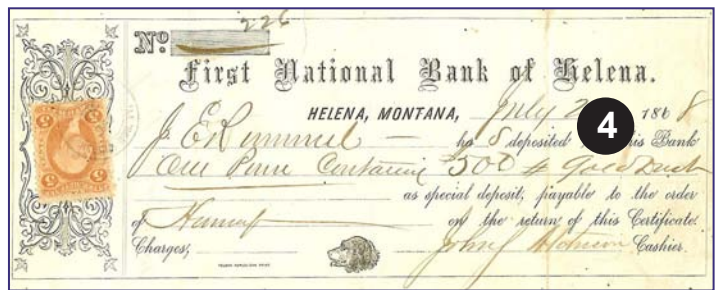 226
No
First National Bank of Helena.
HELENA, MONTANA, July 2 1868
4
J. E. Rummel — has deposited this Bank
One Purse Containing 500 $ Gold Dust
as special deposit, payable to the order
of Himself on the return of this Certificate.
Charges, John Cashier.